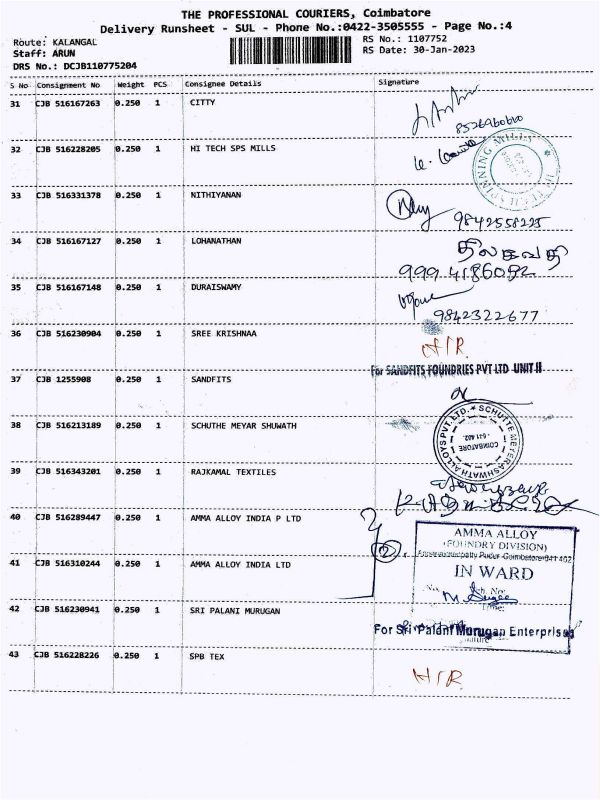 THE PROFESSIONAL COURIERS, Coimbatore
Delivery Runsheet - SUL - Phone No.:0422-3505555 - Page No.:4
Route: KALANGAL
Staff: ARUN
DRS No.: DCJB110775204
RS No.: 1107752
RS Date: 30-Jan-2023
S No Consignment No Weight PCS Consignee Details Signature
31 CJB 516167263 0.250 1 CITTY
32 CJB 516228205 0.250 1 HI TECH SPS MILLS
SPINNING MILLS
33 CJB 516331378 0.250 1 NITHIYANAN
9842558225
34 CJB 516167127 0.250 1 LOHANATHAN
திலகவதி
999 4186092
35 CJB 516167148 0.250 1 DURAISWAMY
9842322677
36 CJB 516230904 0.250 1 SREE KRISHNAA
H/R
For SANDFITS FOUNDRIES PVT LTD UNIT II
37 CJB 1255908 0.250 1 SANDFITS
38 CJB 516213189 0.250 1 SCHUTHE MEYAR SHUWATH
SCHUTTE MEYER ASHWATH ALLOYS PVT. LTD.
COIMBATORE
- 641 402.
39 CJB 516343201 0.250 1 RAJKAMAL TEXTILES
40 CJB 516289447 0.250 1 AMMA ALLOY INDIA P LTD
2
AMMA ALLOY
(FOUNDRY DIVISION)
Coimbatore-641 402
IN WARD
41 CJB 516310244 0.250 1 AMMA ALLOY INDIA LTD
42 CJB 516230941 0.250 1 SRI PALANI MURUGAN
For Sri Palani Murugan Enterprises
43 CJB 516228226 0.250 1 SPB TEX
H/R